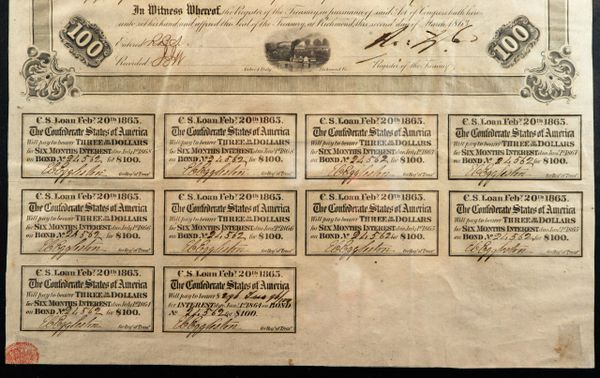 In Witness Whereof, the Register of the Treasury, in pursuance of said Act of Congress, hath here
unto set his hand, and affixed the Seal of the Treasury, at Richmond, this second day of March 1863
100
100
Entered
Recorded
Richmond, Va.
Register of the Treasury
C.S. Loan Feb.y 20th 1863.
The Confederate States of America
Will pay to bearer THREE DOLLARS
for SIX MONTHS INTEREST due July 1st 1868
on BOND No 24562 for $100.
for Reg. of Treas.
C.S. Loan Feb.y 20th 1863.
The Confederate States of America
Will pay to bearer THREE DOLLARS
for SIX MONTHS INTEREST due Jan.y 1st 1868
on BOND No 24,562 for $100.
for Reg. of Treas.
C.S. Loan Feb.y 20th 1863.
The Confederate States of America
Will pay to bearer THREE DOLLARS
for SIX MONTHS INTEREST due July 1st 1867
on BOND No 24,562 for $100.
for Reg. of Treas.
C.S. Loan Feb.y 20th 1863.
The Confederate States of America
Will pay to bearer THREE DOLLARS
for SIX MONTHS INTEREST due Jan.y 1st 1867
on BOND No 24,562 for $100.
for Reg. of Treas.
C.S. Loan Feb.y 20th 1863.
The Confederate States of America
Will pay to bearer THREE DOLLARS
for SIX MONTHS INTEREST due July 1st 1866
on BOND No 24,562 for $100.
for Reg. of Treas.
C.S. Loan Feb.y 20th 1863.
The Confederate States of America
Will pay to bearer THREE DOLLARS
for SIX MONTHS INTEREST due Jan.y 1st 1866
on BOND No 24,562 for $100.
for Reg. of Treas.
C.S. Loan Feb.y 20th 1863.
The Confederate States of America
Will pay to bearer THREE DOLLARS
for SIX MONTHS INTEREST due July 1st 1865
on BOND No 24,562 for $100.
for Reg. of Treas.
C.S. Loan Feb.y 20th 1863.
The Confederate States of America
Will pay to bearer THREE DOLLARS
for SIX MONTHS INTEREST due Jan.y 1st 1865
on BOND No 24,562 for $100.
for Reg. of Treas.
C.S. Loan Feb.y 20th 1863.
The Confederate States of America
Will pay to bearer THREE DOLLARS
for SIX MONTHS INTEREST due July 1st 1864
on BOND No 24562 for $100.
for Reg. of Treas.
C.S. Loan Feb.y 20th 1863.
The Confederate States of America
Will pay to bearer $
for INTEREST due Jan.y 1st 1864 on BOND
No 24,562 for $100.
for Reg. of Treas.